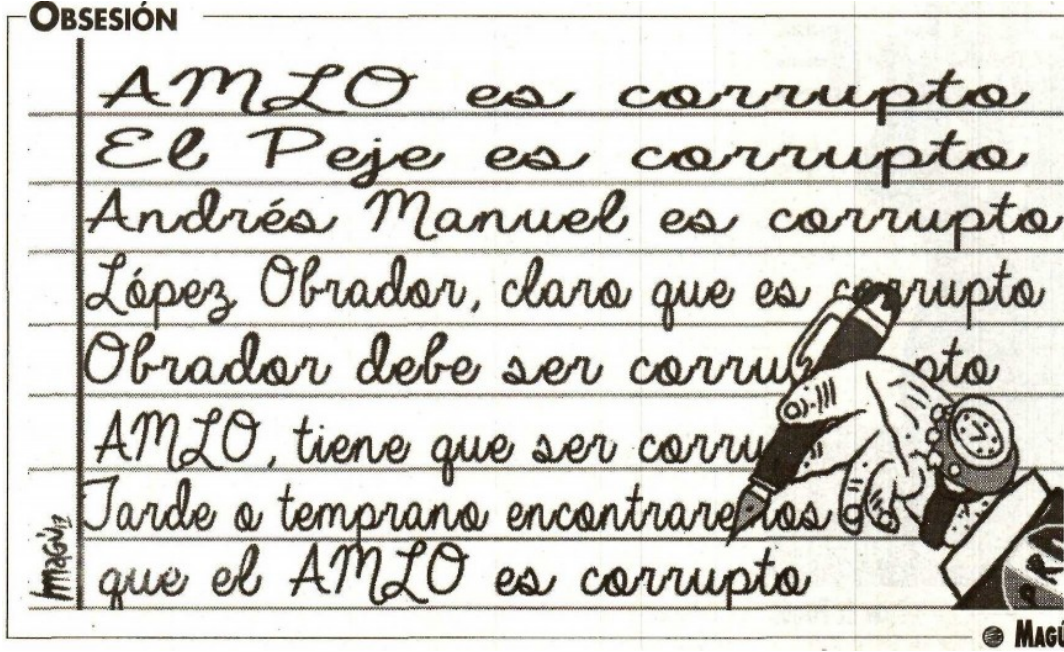 OBSESIÓN
AMLO es corrupto
El Peje es corrupto
Andrés Manuel es corrupto
López Obrador, claro que es corrupto
Obrador debe ser corrupto
AMLO, tiene que ser
Tarde o temprano encontraremos
que el AMLO es corrupto
MAGÚ/12
MAGÚ